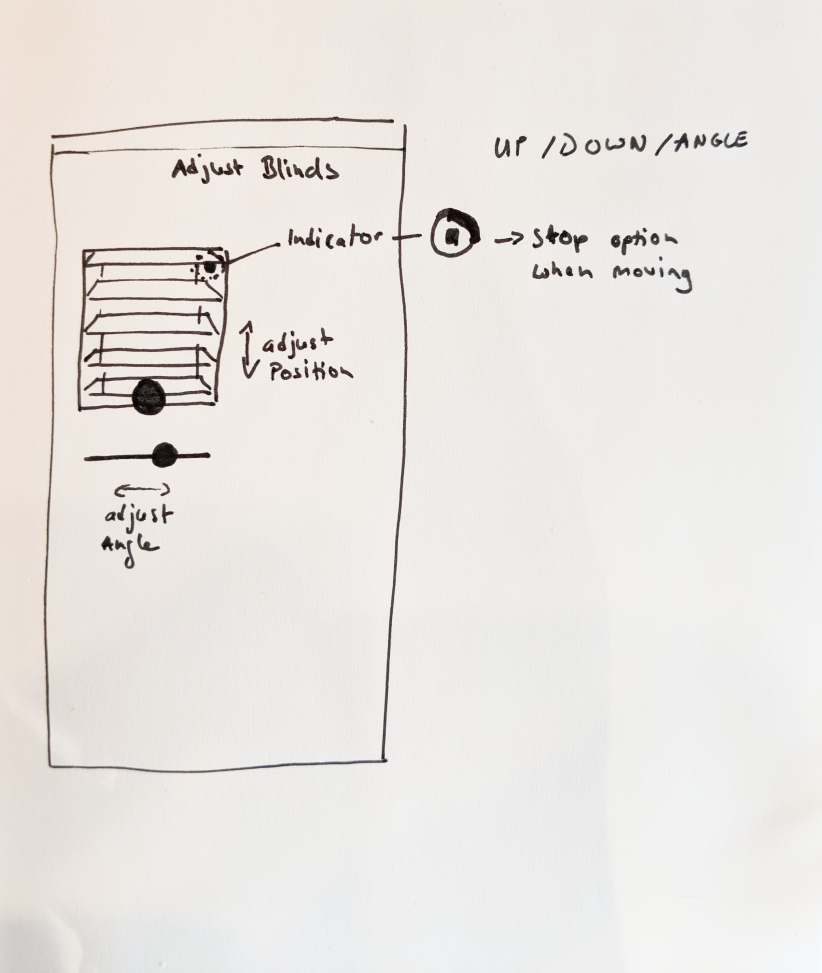 UP / DOWN / ANGLE
Adjust Blinds
Indicator
→ Stop option
when moving
adjust
Position
adjust
Angle